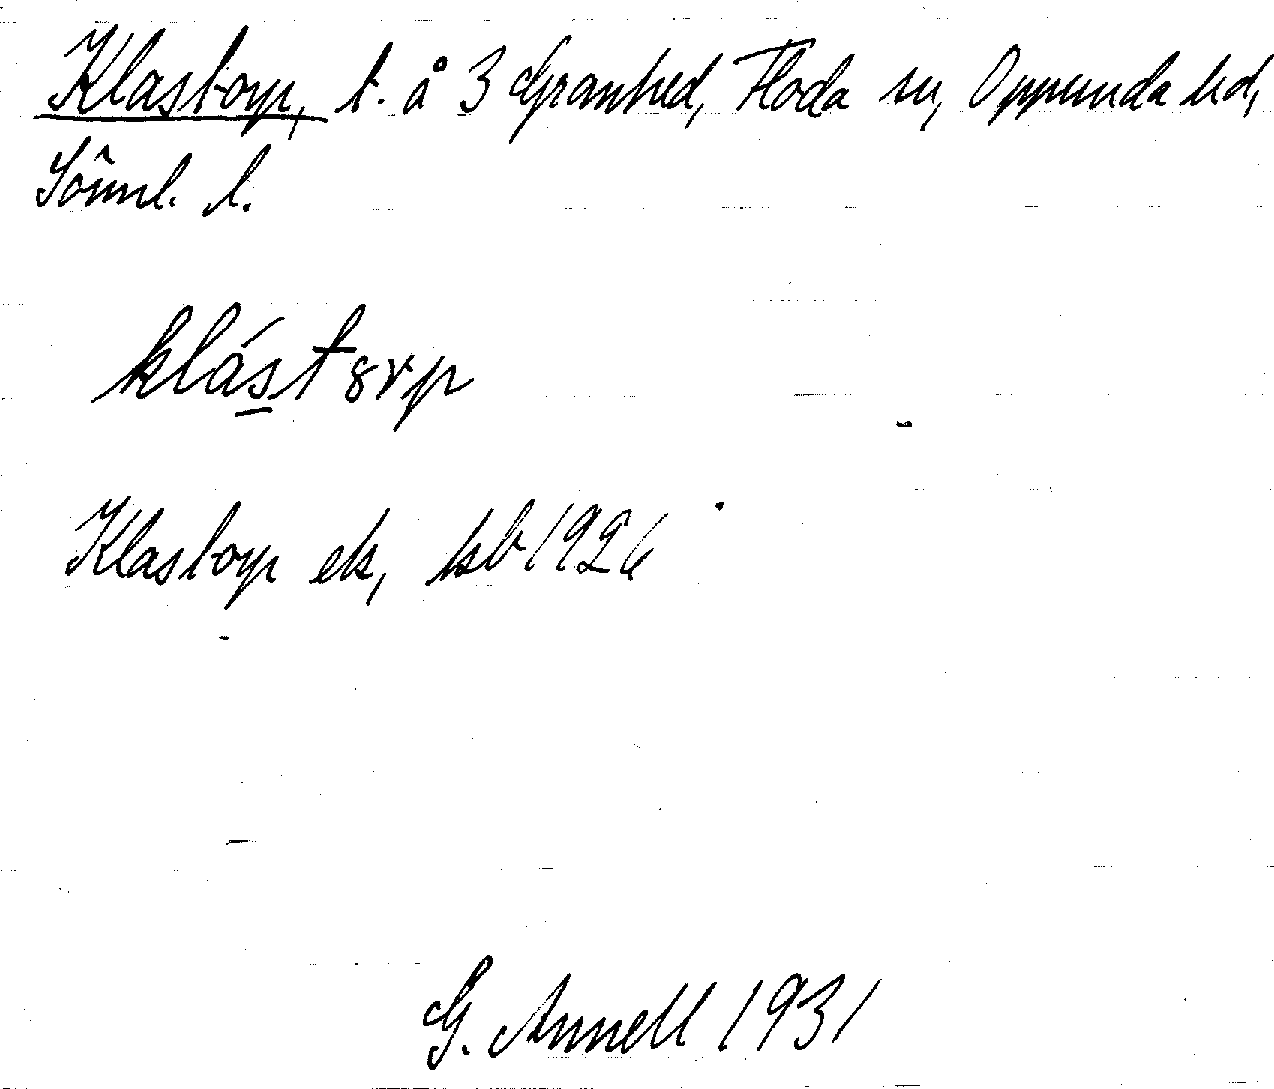 Klastorp, t. å 3 Granhed, Floda sn, Oppunda hd,
Södml. l.
klást8rp
Klastorp ek, kb 1926
G. Annell 1931